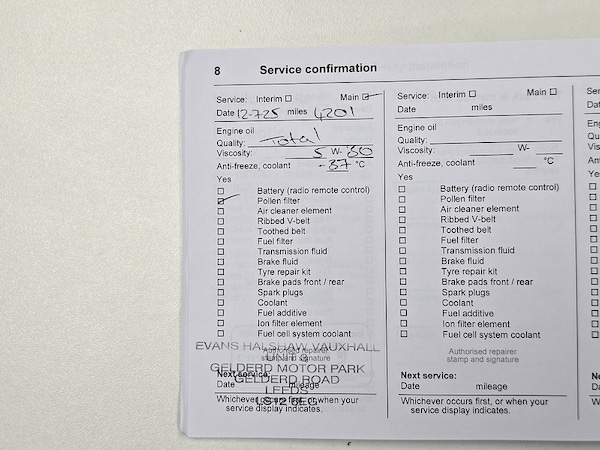 8 Service confirmation
Service: Interim ☐ Main ☑
Date 12-7-25 miles 4201
Engine oil
Quality: Total
Viscosity: 5 W- 30
Anti-freeze, coolant -37 °C
Yes
☐ Battery (radio remote control)
☑ Pollen filter
☐ Air cleaner element
☐ Ribbed V-belt
☐ Toothed belt
☐ Fuel filter
☐ Transmission fluid
☐ Brake fluid
☐ Tyre repair kit
☐ Brake pads front / rear
☐ Spark plugs
☐ Coolant
☐ Fuel additive
☐ Ion filter element
☐ Fuel cell system coolant
Authorised repairer
stamp and signature
EVANS HALSHAW VAUXHALL
UNIT 3
GELDERD MOTOR PARK
GELDERD ROAD
LEEDS
Next service:
Date mileage
Whichever occurs first, or when your
service display indicates.
Service: Interim ☐ Main ☐
Date miles
Engine oil
Quality:
Viscosity: W-
Anti-freeze, coolant °C
Yes
☐ Battery (radio remote control)
☐ Pollen filter
☐ Air cleaner element
☐ Ribbed V-belt
☐ Toothed belt
☐ Fuel filter
☐ Transmission fluid
☐ Brake fluid
☐ Tyre repair kit
☐ Brake pads front / rear
☐ Spark plugs
☐ Coolant
☐ Fuel additive
☐ Ion filter element
☐ Fuel cell system coolant
Authorised repairer
stamp and signature
Next service:
Date mileage
Whichever occurs first, or when your
service display indicates.